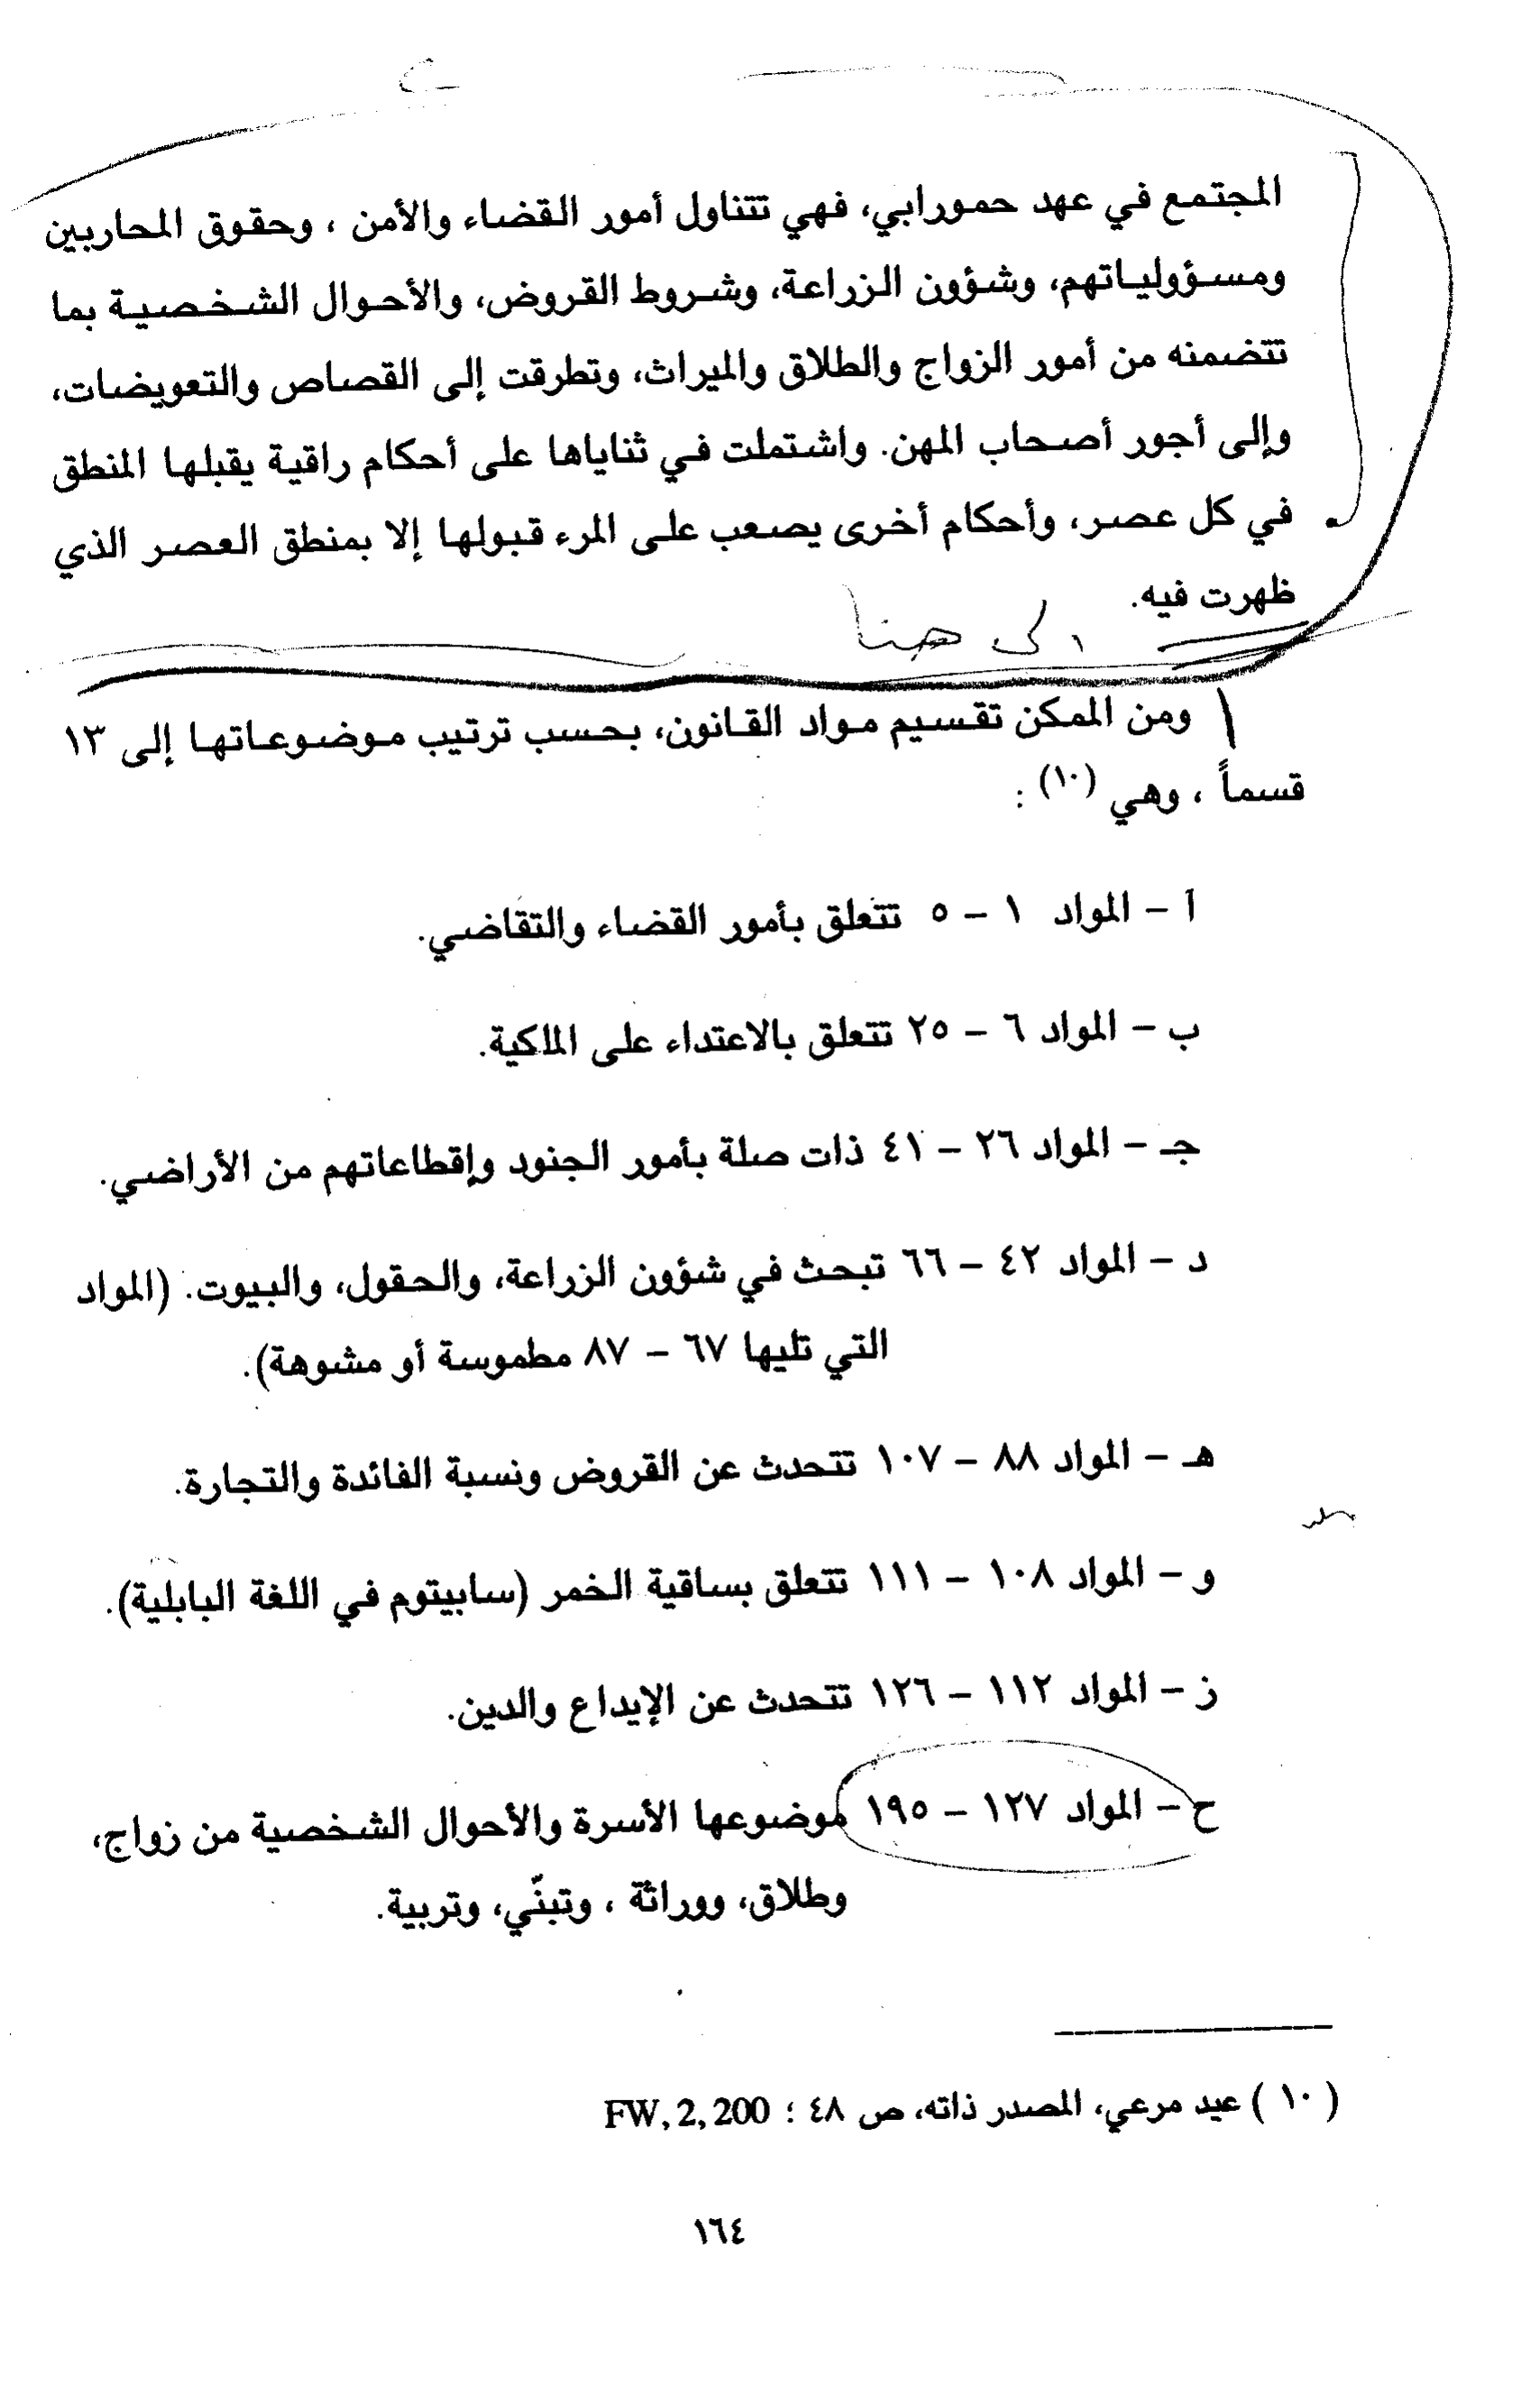 المجتمع في عهد حمورابي، فهي تتناول أمور القضاء والأمن ، وحقوق المحاربين
ومسؤولياتهم، وشؤون الزراعة، وشروط القروض، والأحوال الشخصية بما
تتضمنه من أمور الزواج والطلاق والميراث، وتطرقت إلى القصاص والتعويضات،
وإلى أجور أصحاب المهن. واشتملت في ثناياها على أحكام راقية يقبلها المنطق
في كل عصر، وأحكام أخرى يصعب على المرء قبولها إلا بمنطق العصر الذي
ظهرت فيه.
الى هنا
ومن الممكن تقسيم مواد القانون، بحسب ترتيب موضوعاتها إلى ١٣
قسماً ، وهي (١٠) :
أ - المواد ١ - ٥ تتعلق بأمور القضاء والتقاضي.
ب - المواد ٦ - ٢٥ تتعلق بالاعتداء على الملكية.
جـ - المواد ٢٦ - ٤١ ذات صلة بأمور الجنود وإقطاعاتهم من الأراضي.
د - المواد ٤٢ - ٦٦ تبحث في شؤون الزراعة، والحقول، والبيوت. (المواد
التي تليها ٦٧ - ٨٧ مطموسة أو مشوهة).
هـ - المواد ٨٨ - ١٠٧ تتحدث عن القروض ونسبة الفائدة والتجارة.
و - المواد ١٠٨ - ١١١ تتعلق بساقية الخمر (سابيتوم في اللغة البابلية).
ز - المواد ١١٢ - ١٢٦ تتحدث عن الإيداع والدين.
ح - المواد ١٢٧ - ١٩٥ موضوعها الأسرة والأحوال الشخصية من زواج،
وطلاق، ووراثة ، وتبنّي، وتربية.
( ١٠ ) عيد مرعي، المصدر ذاته، ص ٤٨ ؛ FW, 2, 200
١٦٤